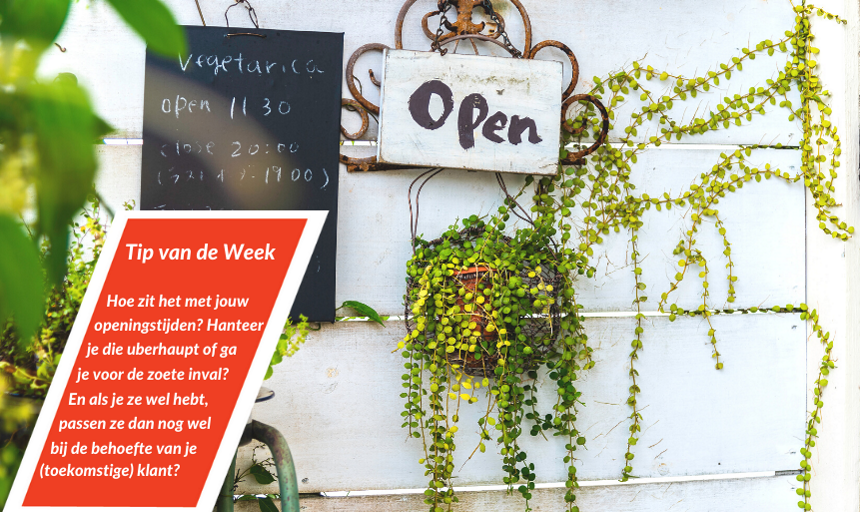 vegetarica
open 11 30
close 20:00
19:00)
Open
Tip van de Week
Hoe zit het met jouw
openingstijden? Hanteer
je die uberhaupt of ga
je voor de zoete inval?
En als je ze wel hebt,
passen ze dan nog wel
bij de behoefte van je
(toekomstige) klant?